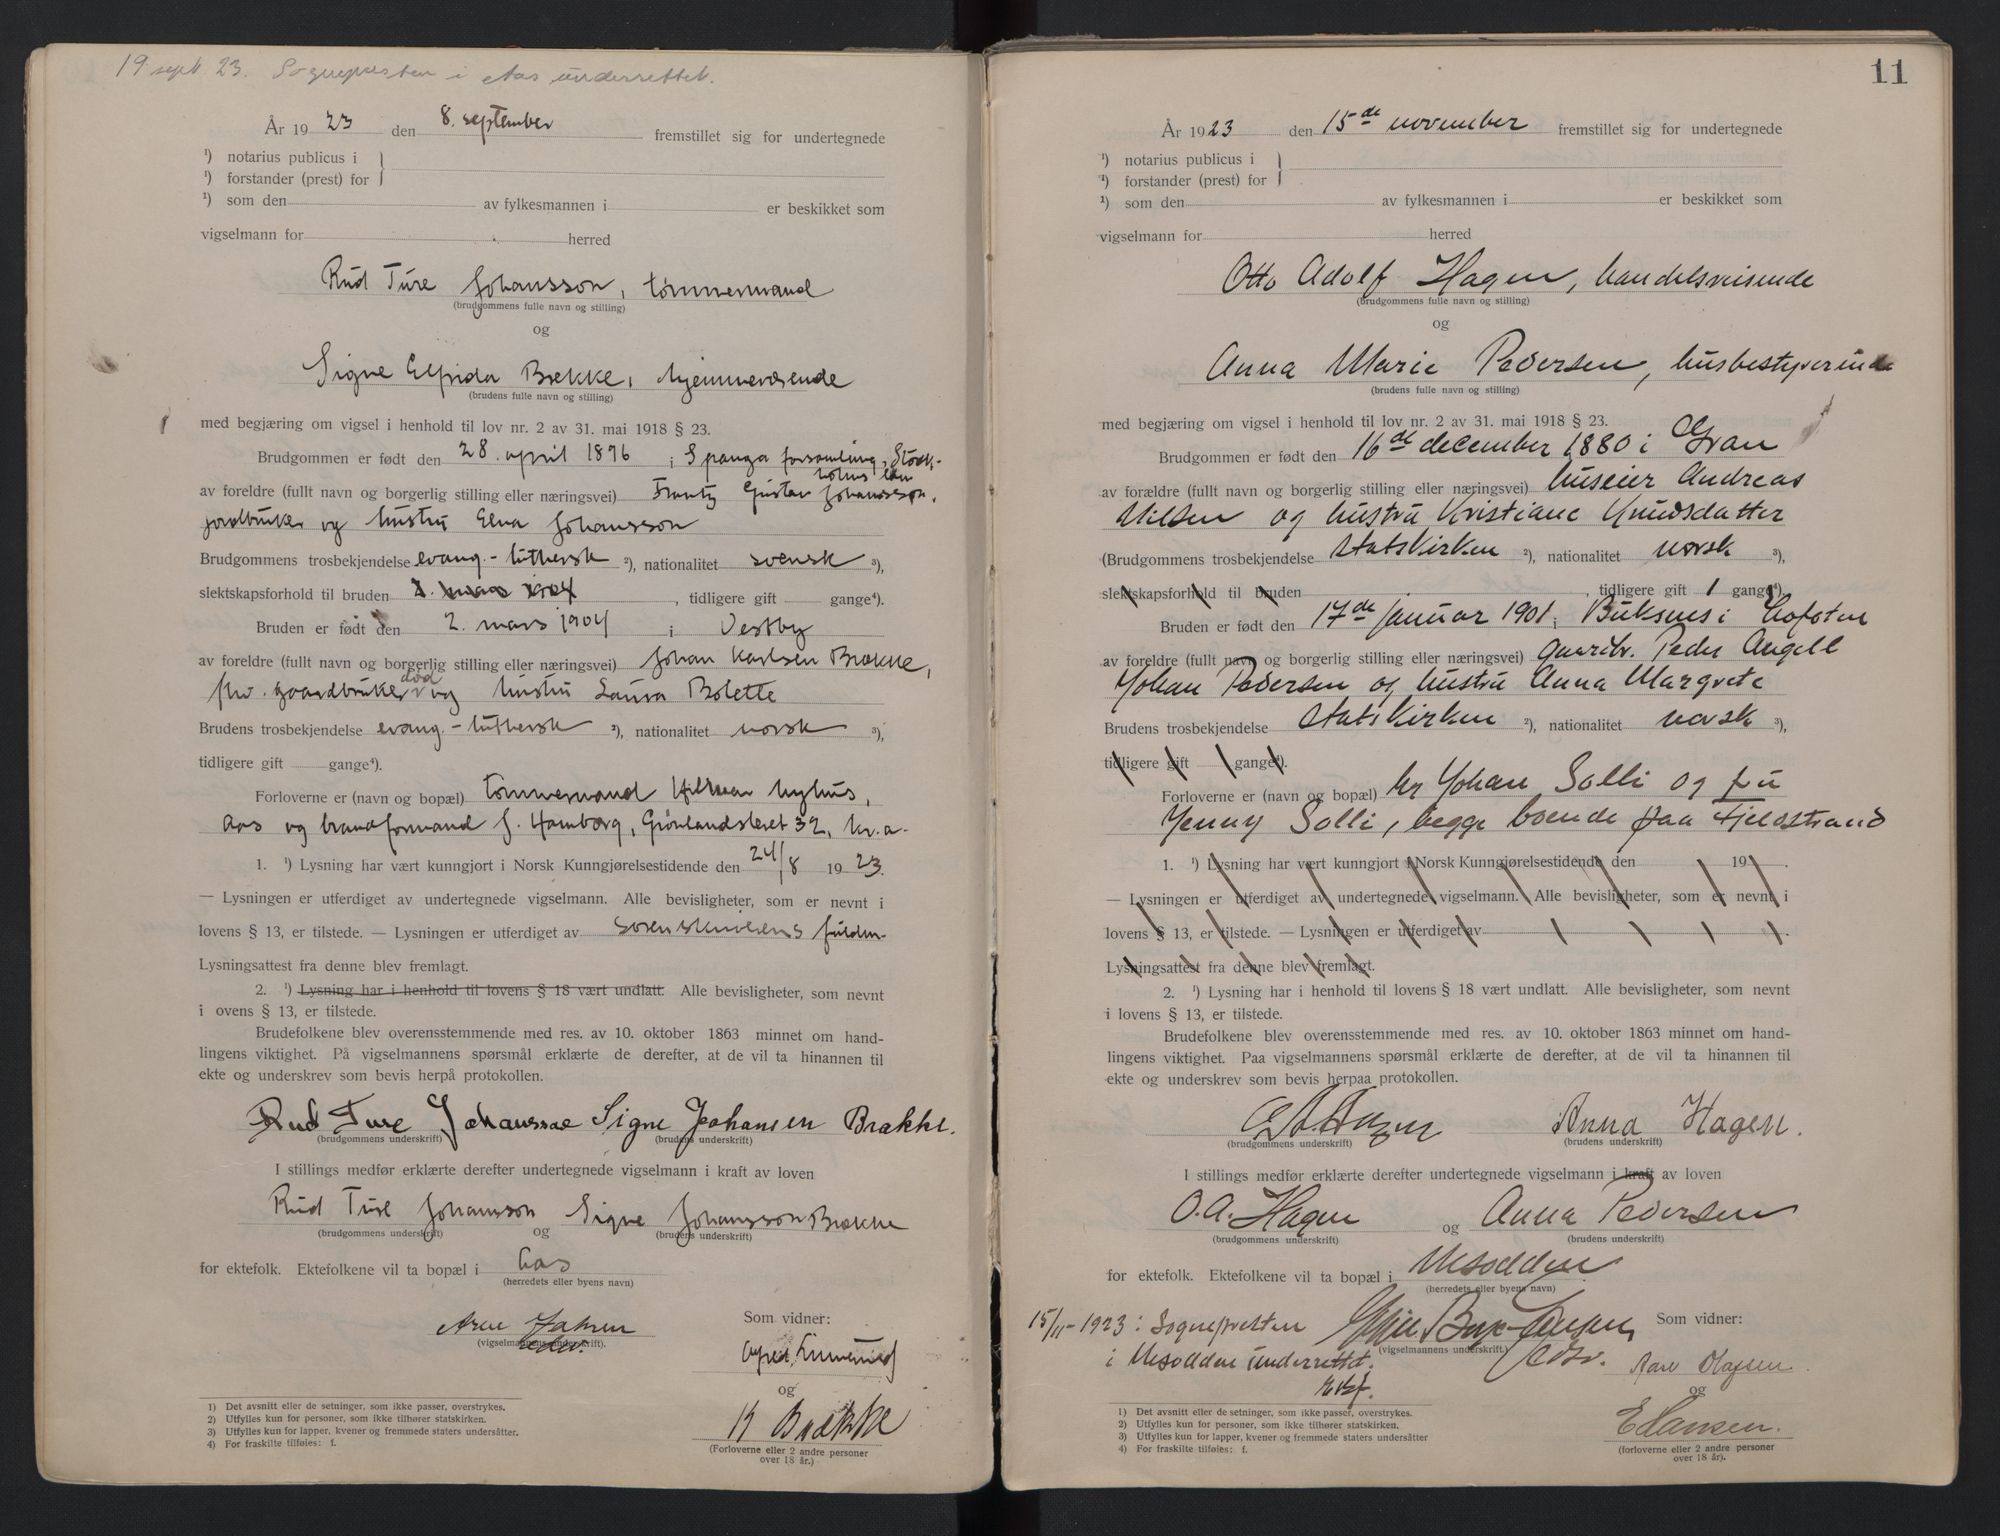 19 sept. 23. Sognepresten i Aas underrettet.
År 1923 den 8. september fremstillet sig for undertegnede
¹) notarius publicus i
¹) forstander (prest) for
¹) som den av fylkesmannen i er beskikket som
vigselmann for herred
Rud Ture Johansson, tømmermand
(brudgommens fulle navn og stilling)
og
Signe Elfrida Brække, hjemmeværende
(brudens fulle navn og stilling)
med begjæring om vigsel i henhold til lov nr. 2 av 31. mai 1918 § 23.
Brudgommen er født den 28. april 1896 i Spånga forsamling, Stock-
holms län
av foreldre (fullt navn og borgerlig stilling eller næringsvei) Frantz Gustav Johansson,
jordbruker og hustru Elna Johansson
Brudgommens trosbekjendelse evang.-luthersk ²), nationalitet svensk ³),
slektskapsforhold til bruden 2. mars 1904, tidligere gift gange⁴).
Bruden er født den 2. mars 1904 i Vestby
av foreldre (fullt navn og borgerlig stilling eller næringsvei) Johan Karlsen Brække,
fhv. gaardbruker død og hustru Laura Bolette
Brudens trosbekjendelse evang.-luthersk ²), nationalitet norsk ³),
tidligere gift gange⁴).
Forloverne er (navn og bopæl) tømmermand Hilmar Nyhus,
Aas og brandformand J. Hamborg, Grønlandsleret 32, Kr.a-
1. ¹) Lysning har vært kunngjort i Norsk Kunngjørelsestidende den 24/8 1923.
— Lysningen er utferdiget av undertegnede vigselmann. Alle bevisligheter, som er nevnt i
lovens § 13, er tilstede. — Lysningen er utferdiget av sorenskriverens fuldm.
Lysningsattest fra denne blev fremlagt.
2. ¹) Lysning har i henhold til lovens § 18 vært undlatt. Alle bevisligheter, som nevnt
i ovens § 13, er tilstede.
Brudefolkene blev overensstemmende med res. av 10. oktober 1863 minnet om hand-
lingens viktighet. På vigselmannens spørsmål erklærte de derefter, at de vil ta hinannen til
ekte og underskrev som bevis herpå protokollen.
Rud Ture Johansson Signe Johansen Brække.
(brudgommens underskrift) (brudens underskrift)
I stillings medfør erklærte derefter undertegnede vigselmann i kraft av loven
Rud Ture Johansson og Signe Johansson Brække
(brudgommens underskrift) (brudens underskrift)
for ektefolk. Ektefolkene vil ta bopæl i Aas
(herredets eller byens navn)
Som vidner:
Arne
(vigselmannens underskrift).
og
K Brække
(Forloverne eller 2 andre personer
over 18 år.)
1) Det avsnitt eller de setninger, som ikke passer, overstrykes.
2) Utfylles kun for personer, som ikke tilhører statskirken.
3) Utfylles kun for lapper, kvener og fremmede staters undersåtter.
4) For fraskilte tilføies: f.
11
År 1923 den 15de november fremstillet sig for undertegnede
¹) notarius publicus i
¹) forstander (prest) for
¹) som den av fylkesmannen i er beskikket som
vigselmann for herred
Otto Adolf Hagen, handelsreisende
(brudgommens fulle navn og stilling)
og
Anna Marie Pedersen, husbestyrerinde
(brudens fulle navn og stilling)
med begjæring om vigsel i henhold til lov nr. 2 av 31. mai 1918 § 23.
Brudgommen er født den 16de december 1880 i Gran
av forældre (fullt navn og borgerlig stilling eller næringsvei) huseier Andreas
Nilsen og hustru Kristiane Knudsdatter
(Brudgommens trosbekjendelse statskirken ²), nationalitet norsk ³),
slektskapsforhold til bruden, tidligere gift 1 gange⁴).
Bruden er født den 17de januar 1901 i Buksnes i Lofoten
av foreldre (fullt navn og borgerlig stilling eller næringsvei) gaardbr. Peder Angell
Johan Pedersen og hustru Anna Margrete
Brudens trosbekjendelse statskirken ²), nationalitet norsk ³),
tidligere gift gange⁴).
Forloverne er (navn og bopæl) hr Johan Solli og fru
Jenny Solli, begge boende paa Fjeldstrand
1. ¹) Lysning har vært kunngjort i Norsk Kunngjørelsestidende den 19 .
— Lysningen er utferdiget av undertegnede vigselmann. Alle bevisligheter, som er nevnt i
lovens § 13, er tilstede. — Lysningen er utferdiget av
Lysningsattest fra denne blev fremlagt.
2. ¹) Lysning har i henhold til lovens § 18 vært undlatt. Alle bevisligheter, som nevnt
i lovens § 13, er tilstede.
Brudefolkene blev overensstemmende med res. av 10. oktober 1863 minnet om hand-
lingens viktighet. Paa vigselmannens spørsmål erklærte de derefter, at de vil ta hinannen til
ekte og underskrev som bevis herpaa protokollen.
O A Hagen Anna Hagen.
(brudgommens underskrift) (brudens underskrift)
I stillings medfør erklærte derefter undertegnede vigselmann i kraft av loven
O. A. Hagen og Anna Pedersen
(brudgommens underskrift) (brudens underskrift)
for ektefolk. Ektefolkene vil ta bopæl i Nesodden
(herredets eller byens navn)
15/11-1923: Sognepresten
i Nesodden underrettet.
(vigselmannens underskrift.)
Som vidner:
Aase Olafsen
og
E Hansen.
(forloverne eller 2 andre personer
over 18 år).
1) Det avsnitt eller de setninger, som ikke passer, overstrykes.
2) Utfylles kun for personer, som ikke tilhører statskirken.
3) Utfylles kun for lapper, kvener og fremmede staters undersåtter
4) For fraskilte tilføies: f.